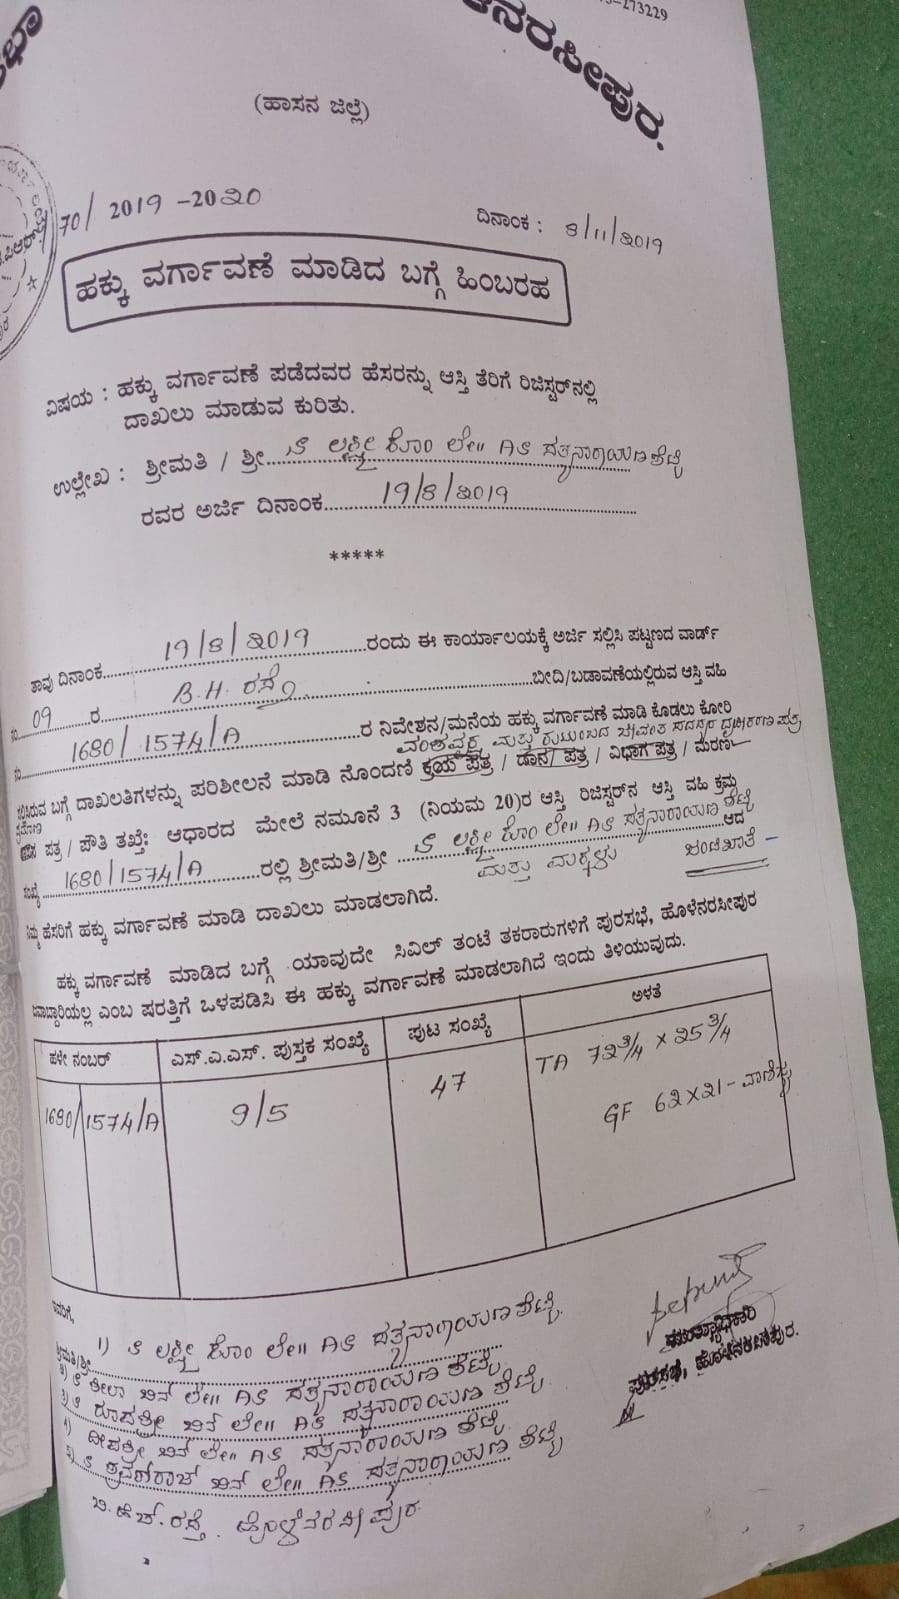 -273229
ನರಸೀಪುರ.
(ಹಾಸನ ಜಿಲ್ಲೆ)
70/ 2019 -2020
ದಿನಾಂಕ : 8/11/2019
ಹಕ್ಕು ವರ್ಗಾವಣೆ ಮಾಡಿದ ಬಗ್ಗೆ ಹಿಂಬರಹ
ವಿಷಯ : ಹಕ್ಕು ವರ್ಗಾವಣೆ ಪಡೆದವರ ಹೆಸರನ್ನು ಆಸ್ತಿ ತೆರಿಗೆ ರಿಜಿಸ್ಟರ್‌ನಲ್ಲಿ
ದಾಖಲು ಮಾಡುವ ಕುರಿತು.
ಉಲ್ಲೇಖ : ಶ್ರೀಮತಿ / ಶ್ರೀ... ಲಕ್ಷ್ಮೀ ಕೋಂ ಲೇ॥ AS ಸತ್ಯನಾರಾಯಣ ಶೆಟ್ಟಿ
ರವರ ಅರ್ಜಿ ದಿನಾಂಕ 19/8/2019
*****
ತಾವು ದಿನಾಂಕ 19/8/2019 ರಂದು ಈ ಕಾರ್ಯಾಲಯಕ್ಕೆ ಅರ್ಜಿ ಸಲ್ಲಿಸಿ ಪಟ್ಟಣದ ವಾರ್ಡ್
ನಂ 09 ರ B.H. ರಸ್ತೆ ಬೀದಿ/ಬಡಾವಣೆಯಲ್ಲಿರುವ ಆಸ್ತಿ ವಹಿ
ನಂ 1680/1574/A ರ ನಿವೇಶನ/ಮನೆಯ ಹಕ್ಕು ವರ್ಗಾವಣೆ ಮಾಡಿ ಕೊಡಲು ಕೋರಿ
ವಂಶವೃಕ್ಷ ಮತ್ತು ಕುಟುಂಬದ ಜೀವಂತ ಸದಸ್ಯರ ದೃಢೀಕರಣ ಪತ್ರ
ಬಗ್ಗೆ ದಾಖಲಾತಿಗಳನ್ನು ಪರಿಶೀಲನೆ ಮಾಡಿ ನೊಂದಣಿ ಕ್ರಯ ಪತ್ರ / ದಾನ ಪತ್ರ / ವಿಭಾಗ ಪತ್ರ / ಮರಣ
ಪತ್ರ / ಪೌತಿ ತಖ್ತೆ: ಆಧಾರದ ಮೇಲೆ ನಮೂನೆ 3 (ನಿಯಮ 20)ರ ಆಸ್ತಿ ರಿಜಿಸ್ಟರ್‌ನ ಆಸ್ತಿ ವಹಿ ಕ್ರಮ
ಸಂಖ್ಯೆ 1680/1574/A ರಲ್ಲಿ ಶ್ರೀಮತಿ/ಶ್ರೀ ಲಕ್ಷ್ಮೀ ಕೋಂ ಲೇ॥ AS ಸತ್ಯನಾರಾಯಣ ಶೆಟ್ಟಿ ಆದ
ಮತ್ತು ಮಕ್ಕಳು ಜಂಟಿಖಾತೆ
ನಿಮ್ಮ ಹೆಸರಿಗೆ ಹಕ್ಕು ವರ್ಗಾವಣೆ ಮಾಡಿ ದಾಖಲು ಮಾಡಲಾಗಿದೆ.
ಹಕ್ಕು ವರ್ಗಾವಣೆ ಮಾಡಿದ ಬಗ್ಗೆ ಯಾವುದೇ ಸಿವಿಲ್ ತಂಟೆ ತಕರಾರುಗಳಿಗೆ ಪುರಸಭೆ, ಹೊಳೆನರಸೀಪುರ
ಜವಾಬ್ದಾರಿಯಲ್ಲ ಎಂಬ ಷರತ್ತಿಗೆ ಒಳಪಡಿಸಿ ಈ ಹಕ್ಕು ವರ್ಗಾವಣೆ ಮಾಡಲಾಗಿದೆ ಇಂದು ತಿಳಿಯುವುದು.
ಹಳೇ ನಂಬರ್ ಎಸ್.ಎ.ಎಸ್. ಪುಸ್ತಕ ಸಂಖ್ಯೆ ಪುಟ ಸಂಖ್ಯೆ ಅಳತೆ
1680/1574/A 9/5 47 TA 72¾ × 25¾
GF 62×21- ವಾಣಿಜ್ಯ
1) ಲಕ್ಷ್ಮೀ ಕೋಂ ಲೇ॥ AS ಸತ್ಯನಾರಾಯಣ ಶೆಟ್ಟಿ.
ಶ್ರೀಮತಿ/ಶ್ರೀ
2) ಶೀಲಾ ಬಿನ್ ಲೇ॥ AS ಸತ್ಯನಾರಾಯಣ ಶೆಟ್ಟಿ
3) ರೂಪಶ್ರೀ ಬಿನ್ ಲೇ॥ AS ಸತ್ಯನಾರಾಯಣ ಶೆಟ್ಟಿ
4) ದೀಪಶ್ರೀ ಬಿನ್ ಲೇ॥ AS ಸತ್ಯನಾರಾಯಣ ಶೆಟ್ಟಿ
5) ಬಿನ್ ಲೇ॥ AS ಸತ್ಯನಾರಾಯಣ ಶೆಟ್ಟಿ
ಬಿ.ಹೆಚ್.ರಸ್ತೆ, ಹೊಳೆನರಸೀಪುರ
ಮುಖ್ಯಾಧಿಕಾರಿ
ಪುರಸಭೆ, ಹೊಳೆನರಸೀಪುರ.